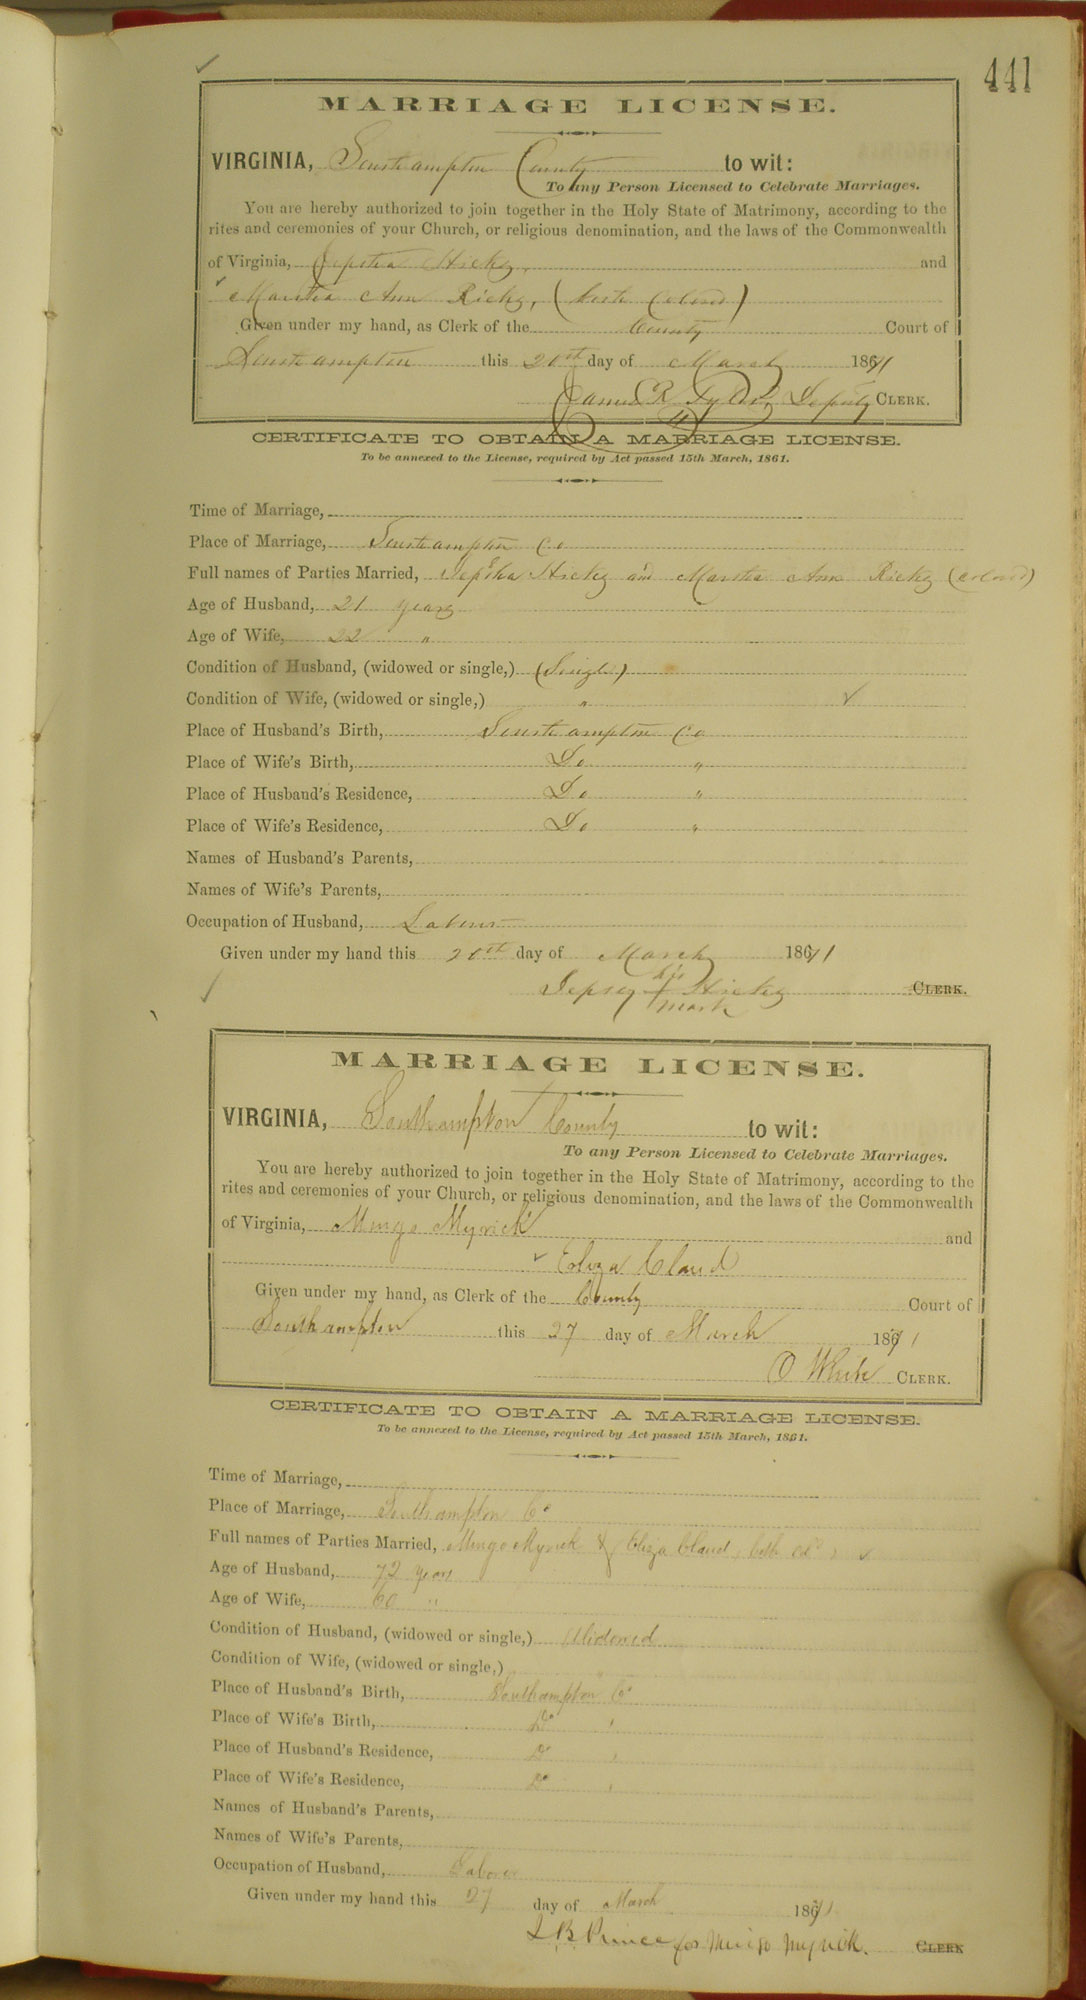 441
MARRIAGE LICENSE.
VIRGINIA, Southampton County to wit:
To any Person Licensed to Celebrate Marriages.
You are hereby authorized to join together in the Holy State of Matrimony, according to the
rites and ceremonies of your Church, or religious denomination, and the laws of the Commonwealth
of Virginia, Jeptha Hicks, and
Martha Ann Ricks, (both Colored)
Given under my hand, as Clerk of the County Court of
Southampton this 20th day of March 1871
James R Tyler, Deputy CLERK.
CERTIFICATE TO OBTAIN A MARRIAGE LICENSE.
To be annexed to the License, required by Act passed 15th March, 1861.
Time of Marriage,
Place of Marriage, Southampton Co
Full names of Parties Married, Jeptha Hicks and Martha Ann Ricks (colored)
Age of Husband, 21 years
Age of Wife, 22 "
Condition of Husband, (widowed or single,) (Single)
Condition of Wife, (widowed or single,) "
Place of Husband's Birth, Southampton Co
Place of Wife's Birth, Do "
Place of Husband's Residence, Do "
Place of Wife's Residence, Do "
Names of Husband's Parents,
Names of Wife's Parents,
Occupation of Husband, Laborer
Given under my hand this 20th day of March 1871
his
Jepsey + Hicks CLERK.
mark
MARRIAGE LICENSE.
VIRGINIA, Southampton County to wit:
To any Person Licensed to Celebrate Marriages.
You are hereby authorized to join together in the Holy State of Matrimony, according to the
rites and ceremonies of your Church, or religious denomination, and the laws of the Commonwealth
of Virginia, Mingo Myrick and
Eliza Claud
Given under my hand, as Clerk of the County Court of
Southampton this 27 day of March 1871
O White CLERK.
CERTIFICATE TO OBTAIN A MARRIAGE LICENSE.
To be annexed to the License, required by Act passed 15th March, 1861.
Time of Marriage,
Place of Marriage, Southampton Co
Full names of Parties Married, Mingo Myrick & Eliza Claud, both cold
Age of Husband, 72 years
Age of Wife, 60 "
Condition of Husband, (widowed or single,) Widowed
Condition of Wife, (widowed or single,) "
Place of Husband's Birth, Southampton Co
Place of Wife's Birth, Do "
Place of Husband's Residence, Do "
Place of Wife's Residence, Do "
Names of Husband's Parents,
Names of Wife's Parents,
Occupation of Husband, Laborer
Given under my hand this 27 day of March 1871
J B Prince for Mingo Myrick. CLERK